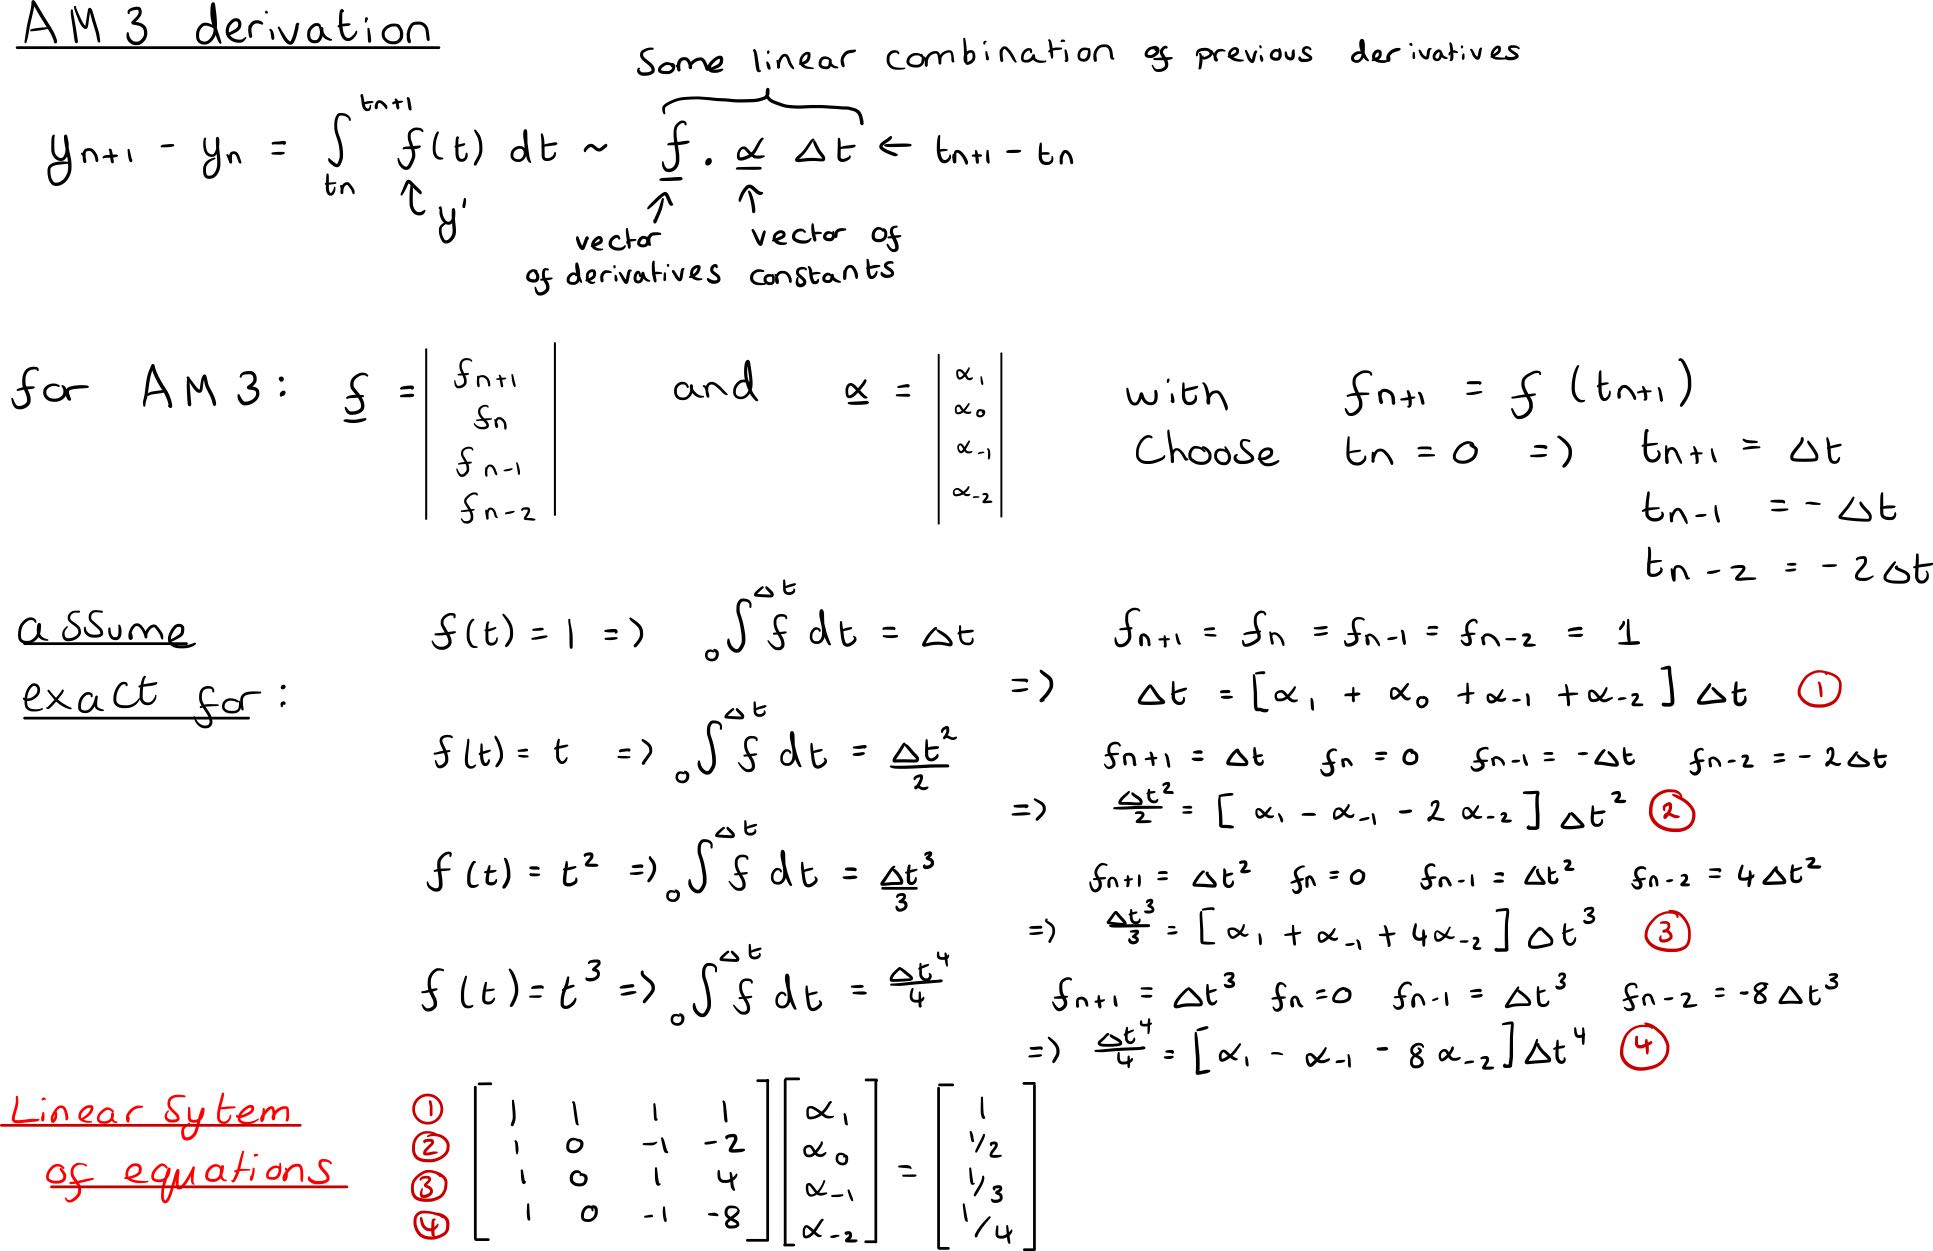 AM3 derivation
Some linear combination of previous derivatives
y_{n+1} - y_n = ∫_{tn}^{tn+1} f(t) dt ~ f . α Δt ← t_{n+1} - t_n
y'
vector of derivatives
vector of constants
for AM3: f = | f_{n+1} f_n f_{n-1} f_{n-2} | and α = | α_1 α_0 α_{-1} α_{-2} | with f_{n+1} = f(t_{n+1})
Choose t_n = 0 => t_{n+1} = Δt
t_{n-1} = -Δt
t_{n-2} = -2Δt
assume exact for:
f(t) = 1 => ₀∫^{Δt} f dt = Δt
f_{n+1} = f_n = f_{n-1} = f_{n-2} = 1
=> Δt = [α_1 + α_0 + α_{-1} + α_{-2}] Δt ①
f(t) = t => ₀∫^{Δt} f dt = Δt²/2
f_{n+1} = Δt f_n = 0 f_{n-1} = -Δt f_{n-2} = -2Δt
=> Δt²/2 = [α_1 - α_{-1} - 2α_{-2}] Δt² ②
f(t) = t² => ₀∫^{Δt} f dt = Δt³/3
f_{n+1} = Δt² f_n = 0 f_{n-1} = Δt² f_{n-2} = 4Δt²
=> Δt³/3 = [α_1 + α_{-1} + 4α_{-2}] Δt³ ③
f(t) = t³ => ₀∫^{Δt} f dt = Δt⁴/4
f_{n+1} = Δt³ f_n = 0 f_{n-1} = Δt³ f_{n-2} = -8Δt³
=> Δt⁴/4 = [α_1 - α_{-1} - 8α_{-2}] Δt⁴ ④
Linear Sytem of equations
① 1 1 1 1 α_1 1
② 1 0 -1 -2 α_0 1/2
③ 1 0 1 4 α_{-1} = 1/3
④ 1 0 -1 -8 α_{-2} 1/4